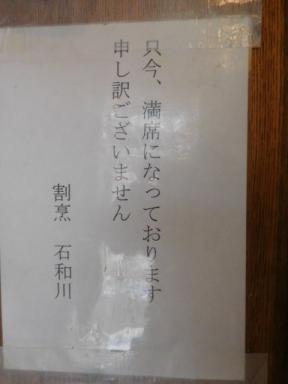 只今、満席になっております
申し訳ございません
割烹　石和川